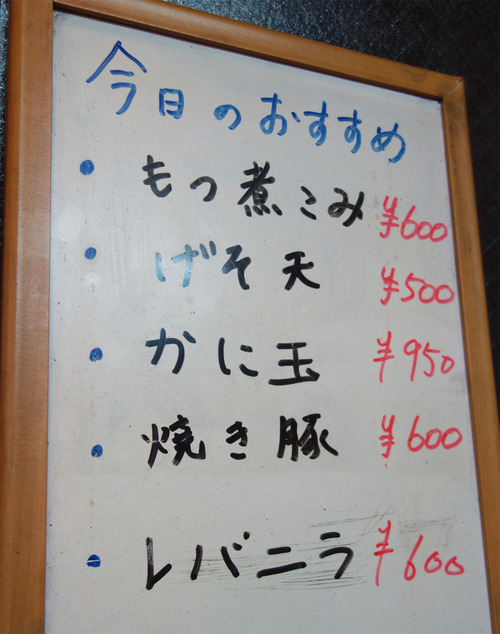 今日のおすすめ
• もつ煮こみ ¥600
• げそ天 ¥500
• かに玉 ¥950
• 焼き豚 ¥600
• レバニラ ¥600